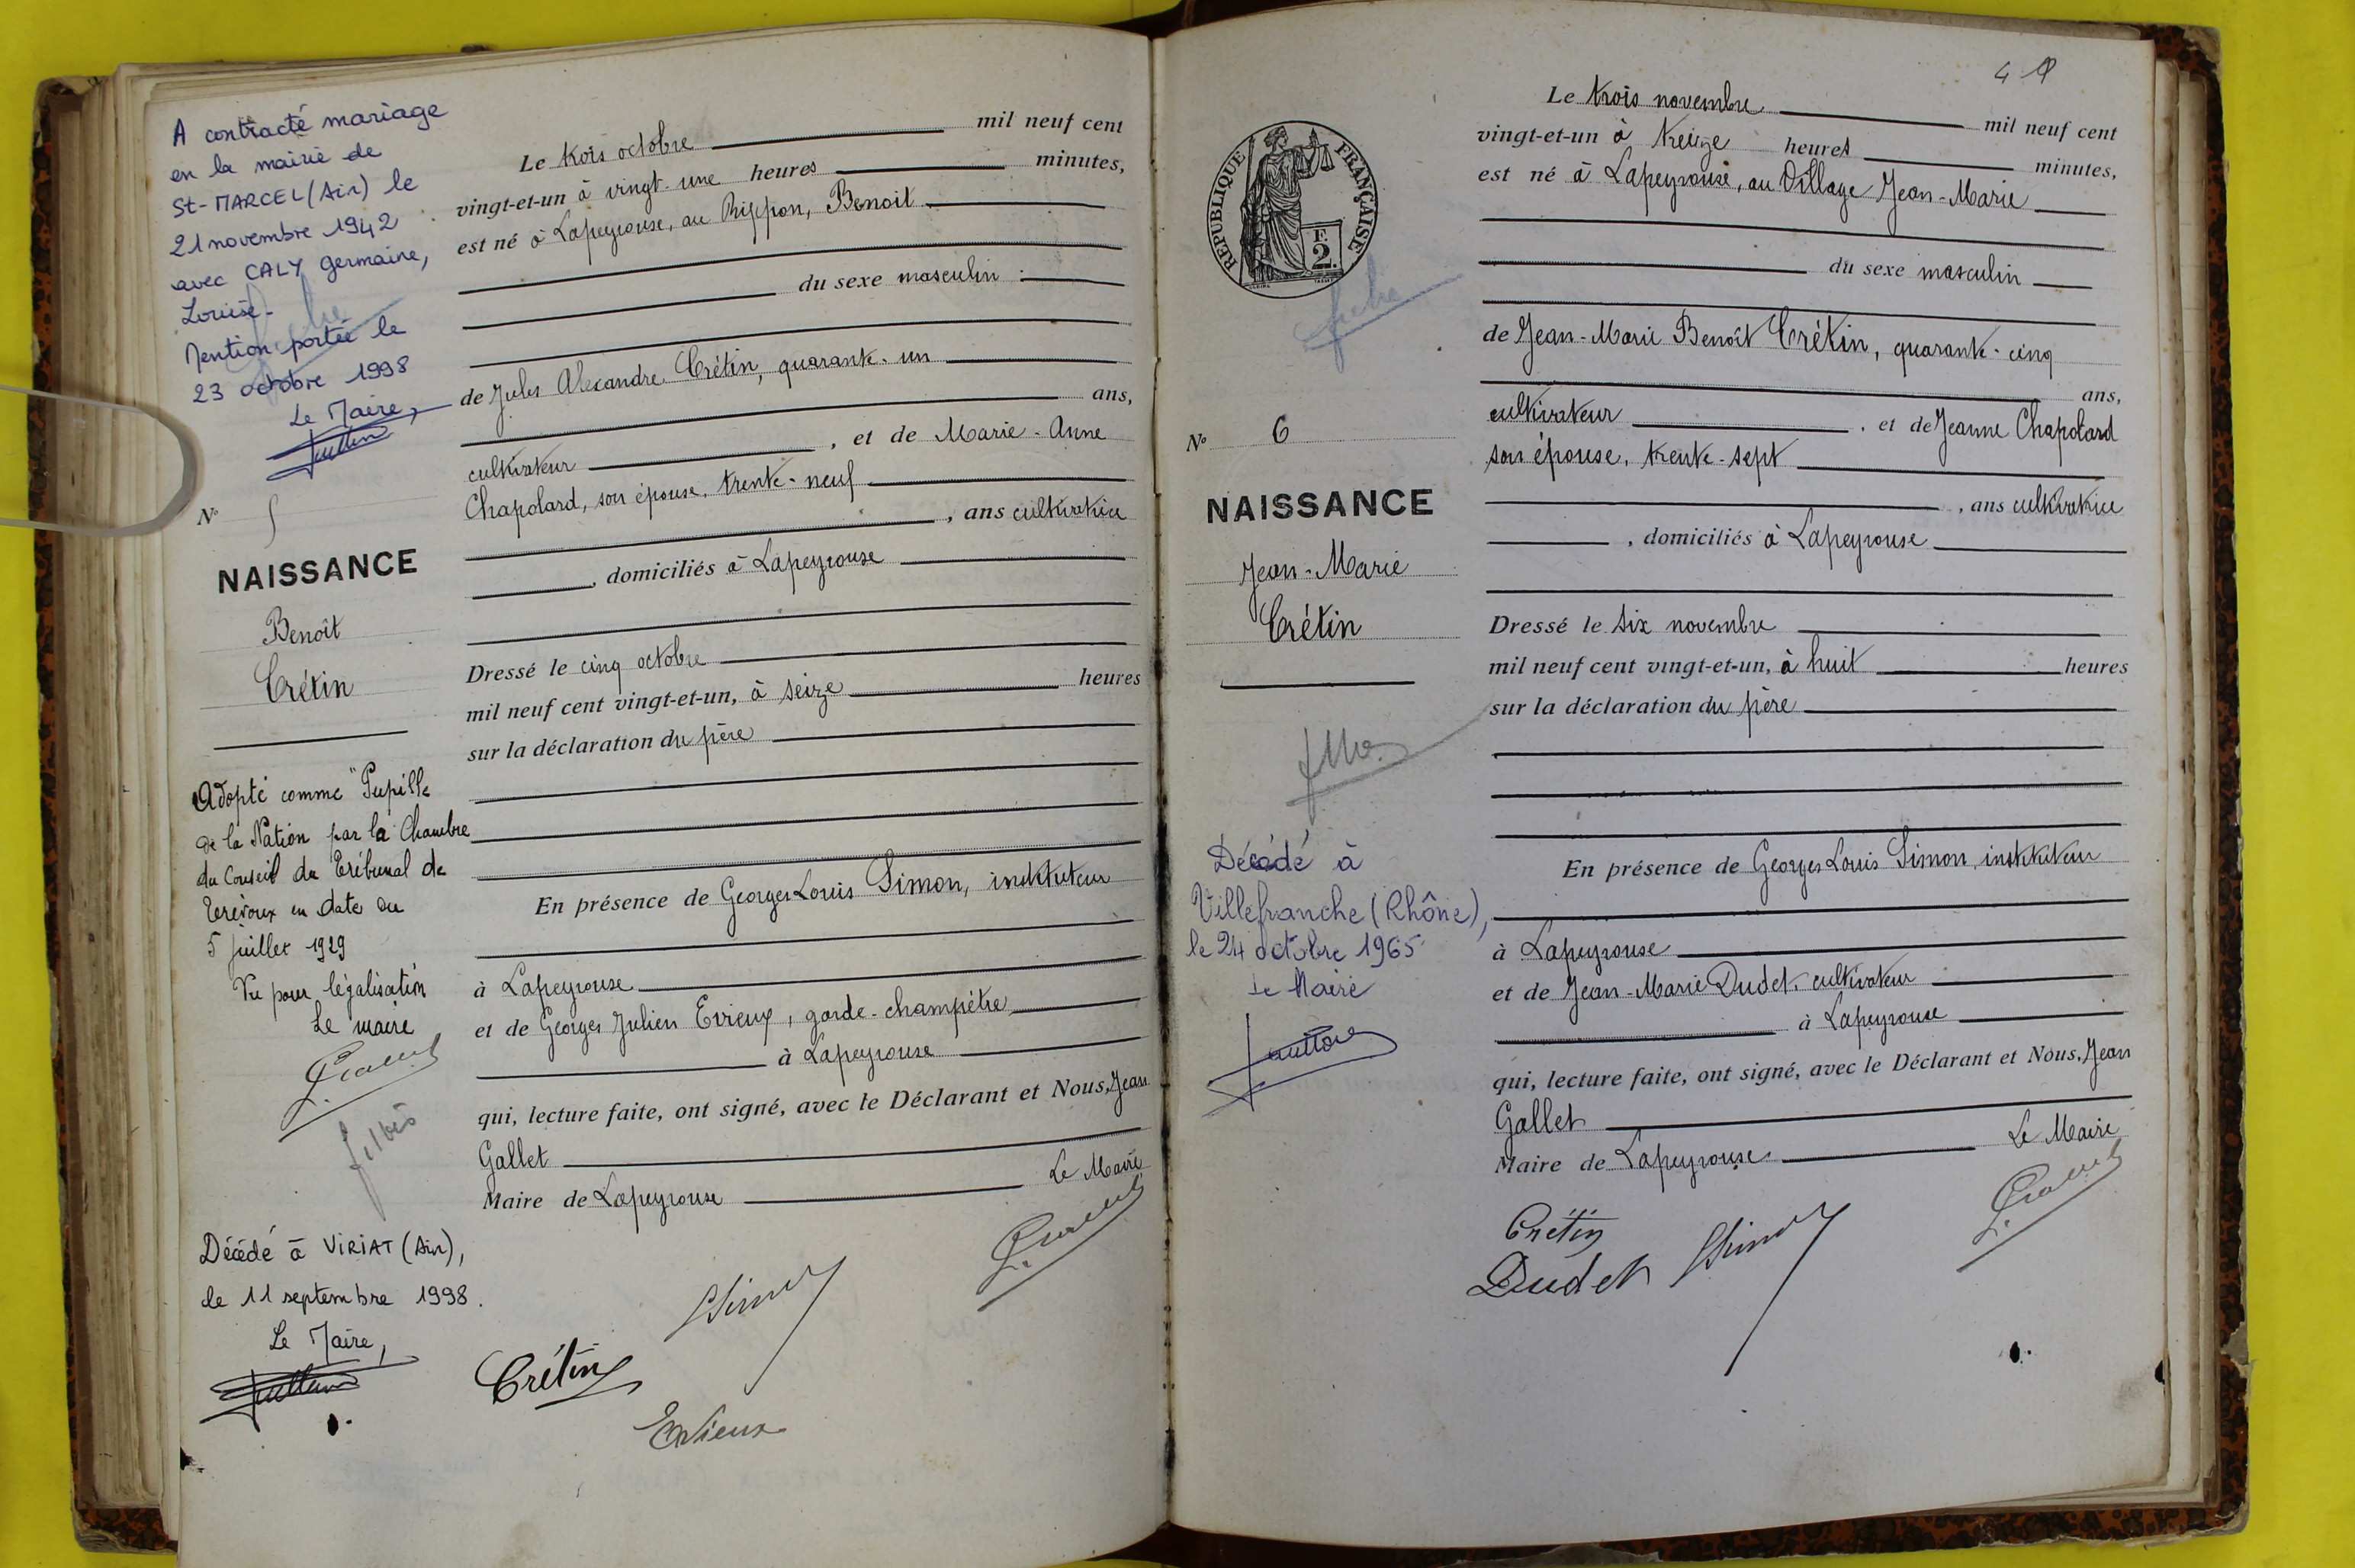 A contracté mariage
en la mairie de
St-MARCEL (Ain) le
21 novembre 1942
avec CALY Germaine,
Louise.
Mention portée le
23 octobre 1998
Le Maire,
N°
NAISSANCE
Benoît
Crétin
Adopté comme "Pupille
de la Nation par la Chambre
du Conseil du Tribunal de
Trévoux en date du
5 juillet 1929
Vu pour légalisation
Le maire
Décédé à VIRIAT (Ain),
le 11 septembre 1998.
Le Maire,
Le trois octobre mil neuf cent
vingt-et-un à vingt-une heures minutes,
est né à Lapeyrouse, au Benoit
du sexe masculin :
de Jules Alexandre Crétin, quarante-un
ans,
cultivateur, et de Marie-Anne
Chapolard, son épouse, trente-neuf
, ans cultivatrice
, domiciliés à Lapeyrouse
Dressé le cinq octobre
mil neuf cent vingt-et-un, à seize heures
sur la déclaration du père
En présence de Georges Louis Simon, instituteur
à Lapeyrouse
et de Georges Julien Evieux, garde-champêtre
à Lapeyrouse
qui, lecture faite, ont signé, avec le Déclarant et Nous, Jean
Gallet
Maire de Lapeyrouse Le Maire
Crétin
Evieux
4
REPUBLIQUE FRANÇAISE
F.
2.
fiche
N° 6
NAISSANCE
Jean-Marie
Crétin
Décédé à
Villefranche (Rhône),
le 24 octobre 1965
Le Maire
Le trois novembre mil neuf cent
vingt-et-un à treize heures minutes,
est né à Lapeyrouse, au Village Jean-Marie
du sexe masculin
de Jean-Marie Benoît Crétin, quarante-cinq
ans,
cultivateur, et de Jeanne Chapolard
son épouse, trente-sept
, ans cultivatrice
, domiciliés à Lapeyrouse
Dressé le six novembre
mil neuf cent vingt-et-un, à huit heures
sur la déclaration du père
En présence de Georges Louis Simon, instituteur
à Lapeyrouse
et de Jean-Marie Dudet, cultivateur
à Lapeyrouse
qui, lecture faite, ont signé, avec le Déclarant et Nous, Jean
Gallet
Maire de Lapeyrouse Le Maire
Crétin
Dudet